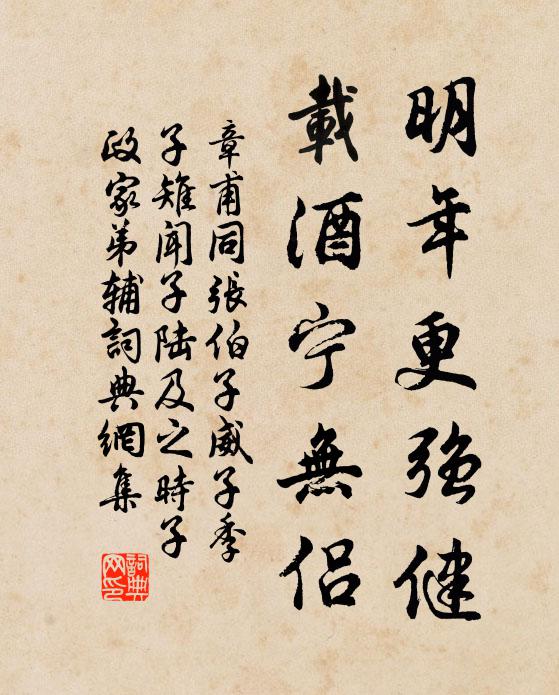 明年更強健
載酒宁無侶
章甫同張伯子威子季
子雉闻子陆及之時子
政家弟辅詞典網集
詞典网印